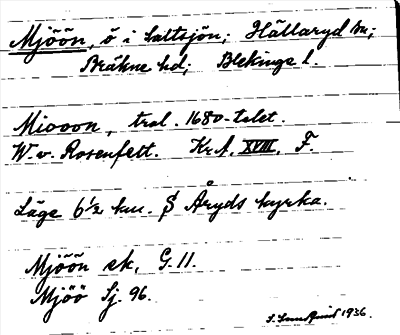 Mjöön, ö i saltsjön; Hällaryd sn;
Bräkne hd; Blekinge l.
Miooon, trol. 1680-talet.
W. v. Rosenfelt. Kr.A. XVIII. F.
Läge 6½ km. S Åryds kyrka.
Mjöön ek. G. 11.
Mjöö Sj. 96.
1936.